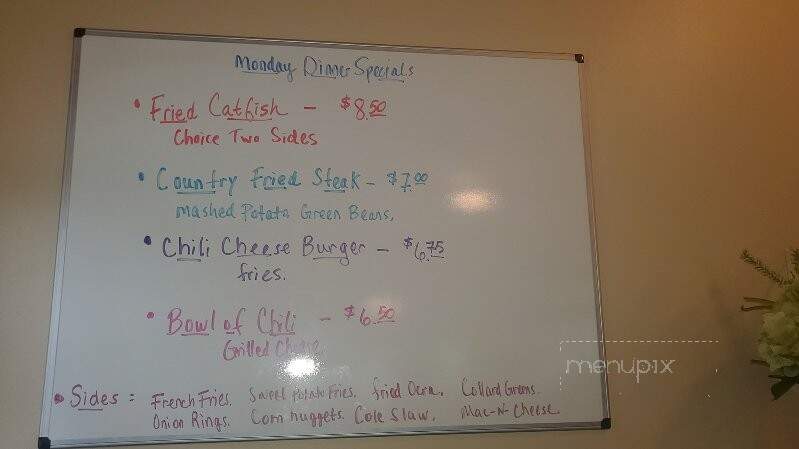 Monday Dinner Specials
• Fried Catfish - $8.50
Choice Two Sides
• Country Fried Steak - $7.00
mashed Potato Green Beans,
• Chili Cheese Burger - $6.75
fries.
• Bowl of Chili - $6.50
Grilled Cheese
menupix
• Sides = French Fries. Sweet Potato Fries. fried Ocra. Collard Greens.
Onion Rings. Corn nuggets. Cole Slaw. Mac-N-Cheese.